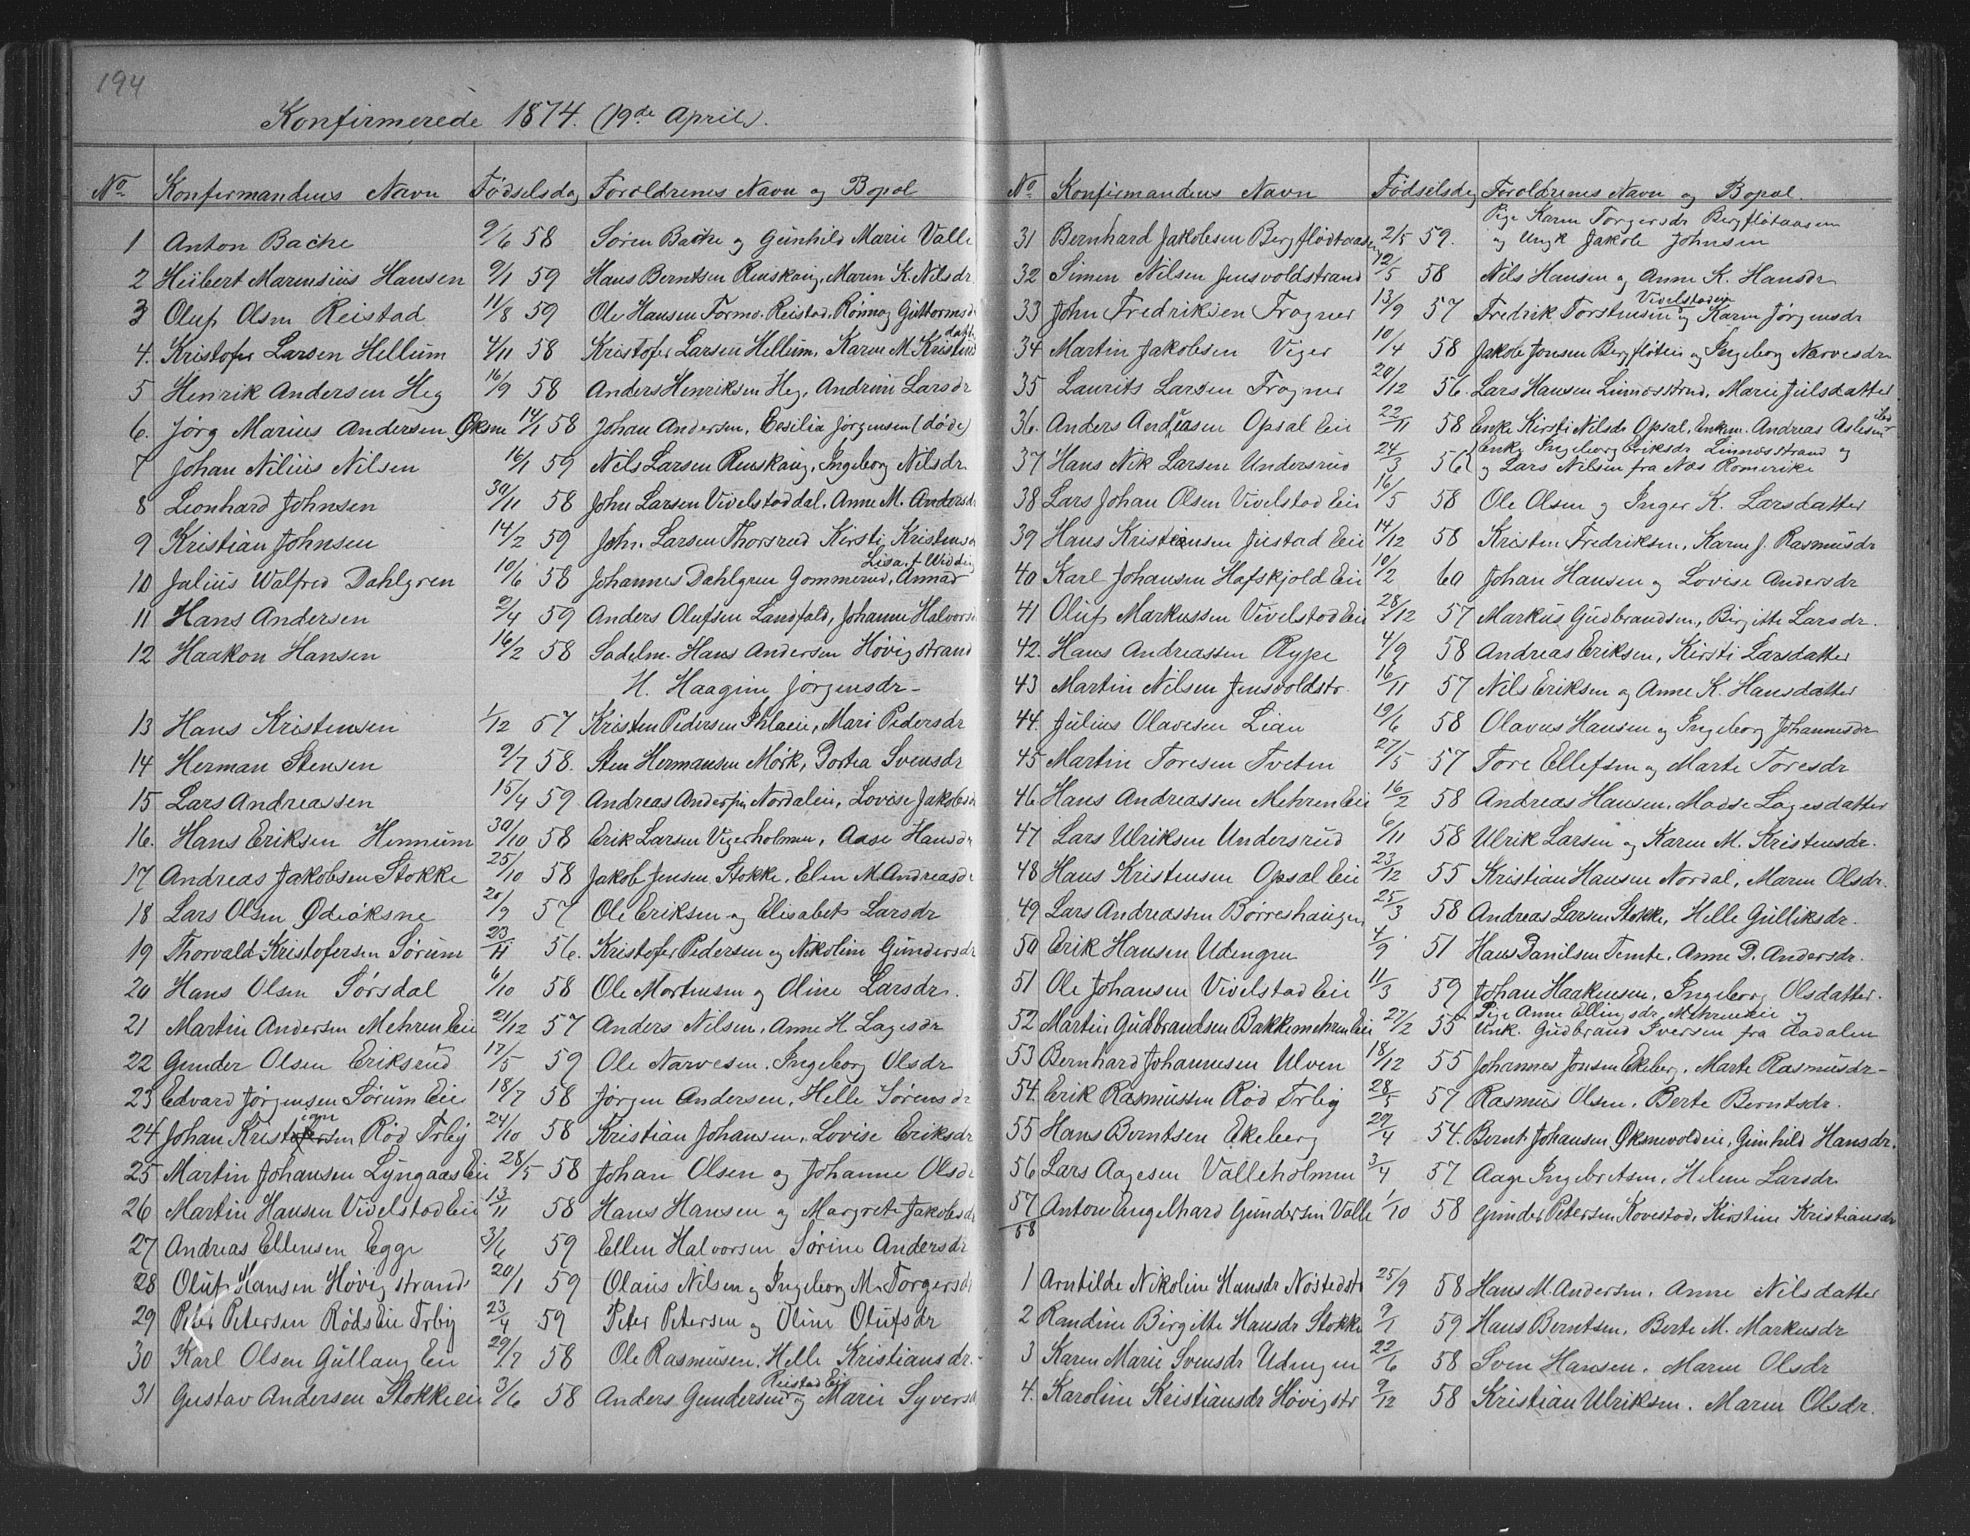 194
Konfirmerede 1874. (19de April).
No Konfirmandens Navn Fødselsdag Foreldrenes Navn og Bopæl
1 Anton Bache 9/6 58 Søren Bache og Gunhild Marie Valle
2 Heibert Marensius Hansen 9/1 59 Hans Berntsen Renskaug, Maren K. Nilsdr
3 Oluf Olsen Reistad 11/8 59 Ole Hansen Formo. Reistad, Rønnog Guttormsd
4. Kristofer Larsen Hellum 4/11 58 Kristofer Larsen Hellum, Karen M. Kristend datter
5 Henrik Andersen Heg 16/9 58 Anders Henriksen Heg, Andrine Larsdr
6. Jørg Marius Andersen Øksne 14/1 58 Johan Andersen, Cesilia Jørgensen (døde)
7 Johan Nilius Nilsen 16/1 59 Nils Larsen Renskaug, Ingeborg Nilsdr
8 Leonhard Johnsen 30/11 58 John Larsen Vivelstaddal, Anne M. Andersd
9 Kristian Johnsen 14/2 59 John Larsen Thorsrud Kirsti Kristensd
10 Julius Walfred Dahlgren 10/6 58 Johannes Dahlgren Gommerud, Anna Lisa f. Widdin
11 Hans Andersen 2/4 59 Anders Olufsen Landfald, Johanne Halvorsd
12 Haakon Hansen 16/2 58 Sadelm. Hans Andersen Høvigstrand
H. Haagine Jørgensdr
13 Hans Kristensen 1/12 57 Kristen Pedersen Ihlaeie, Mari Pedersdr
14 Herman Stensen 9/7 58. Sten Hermansen Mørk, Dortea Svensdr
15 Lars Andreassen 15/4 59. Andreas Andersen Nordaleie, Lovise Jakobsd
16. Hans Eriksen Hennum 30/10 58 Erik Larsen Vigerholmen, Aase Hansdr
17 Andreas Jakobsen Stokke 25/10 58 Jakob Jensen Stokke, Elen M Andreasd
18 Lars Olsen Ødeøksne 20/9 57 Ole Eriksen og Elisabet Larsdr
19 Thorvald Kristofersen Sørum 23/11 56. Kristofer Pedersen og Nikoline Gundersdr
20 Hans Olsen Sørsdal 6/10 58 Ole Mortensen og Oline Larsdr.
21 Martin Andersen Mehren Eie 21/12 57 Anders Nilsen, Anne H. Lagesdr
22 Gunder Olsen Eriksrud 17/5 59 Ole Narvesen. Ingeborg Olsdr
23 Edvard Jørgensen Sørum Eie 18/7 58 Jørgen Andersen, Helle Sørensdr
24 Johan Kristiansen Rød Frby 24/10 58 Kristian Johansen, Lovise Eriksdr
25 Martin Johansen Lyngaas Eie 28/5 58 Johan Olsen og Johanne Olsd
26 Martin Hansen Vivelstad Eie 13/11 58 Hans Hansen og Margrete Jakobsd
27 Andreas Ellensen Egge 3/6 59 Ellen Halvorsen Sørine Andersdr
28 Oluf Hansen Høvigstrand 20/1 59 Olaus Nilsen og Ingeborg M. Torgersd
29 Peter Petersen Rødseie Frby 23/4 59 Peter Petersen og Oline Olufsdr
30 Karl Olsen Gullaug Eie 29/7 58 Ole Rasmusen, Helle Kristiansdr.
31 Gustav Andersen Stokkeeie 3/6 58 Anders Gundersen Reistad Eie og Marie Syversd
No Konfirmandens Navn Fødselsdag Foreldrenes Navn og Bopæl.
31 Bernhard Jakobsen Bergflødtaasen 2/5 59. Pige Karen Torgersdr Bergfløtaasen
og Ungk Jakob Johnsen
32 Simen Nilsen Jensvoldstrand 12/5 58 Nils Hansen og Anne K. Hansdr
33 John Fredriksen Frogner 13/9 57 Fredrik Torstensen Vivelstaden og Karen Jørgensdr
34 Martin Jakobsen Viger 10/4 58 Jakob Jonsen Bergfløteie og Ingeborg Narvesdr
35 Laurits Larsen Frogner 20/12 56. Lars Hansen Linnesstrand, Marie Juulsdatter
36. Anders Andreasen Opsal Eie 22/11 58 Enke Kirsti Nilsdr Opsal, Enkm. Andreas Aslesen ibd
37 Hans Nik Larsen Undersrud 24/3 56 Enke Ingeborg Eriksdr Linnesstrand og
og Lars Nilsen fra Næs Romerike
38 Lars Johan Olsen Vivelstad Eie 16/5 58 Ole Olsen og Inger K. Larsdatter
39 Hans Kristensen Justad Eie 14/12 58 Kristen Fredriksen, Karen J. Rasmusdr
40 Karl Johansen Hafskjold Eie 10/2 60 Johan Hansen og Lovise Andersdr
41 Oluf Markussen Vivelstad Eie 28/12 57 Markus Gudbrandsen, Birgitte Larsdr.
42. Hans Andreassen Rype 4/9 58 Andreas Eriksen, Kirsti Larsdatter
43 Martin Nilsen Jensvoldstr. 16/11 57 Nils Eriksen og Anne K. Hansdatter
44. Julius Olavesen Lian 19/6 58 Olavus Hansen og Ingeborg Johannesdr
45 Martin Toresen Tveten 27/5 57 Tore Ellefsen og Marte Toresdr
46 Hans Andreassen Mehren Eie 16/2 58 Andreas Hansen, Madse Lagesdatter
47 Lars Ulriksen Undersrud 6/11 58 Ulrik Larsen og Karen M. Kristensdr.
48 Hans Kristensen Opsal Eie 23/12 55 Kristian Hansen Nordal, Maren Olsdr.
49 Lars Andreassen Børreshaugen 25/3 58 Andreas Larsen Stokke, Helle Gulliksdr.
50 Erik Hansen Udengen 4/9 51 Hans Danielsen Temte, Anne D. Andersdr.
51 Ole Johansen Vivelstad Eie 11/3 59 Johan Haakensen, Ingeborg Olsdatter.
52 Martin Gudbrandsen Bakkemehren Eie 27/2 55 Pige Anne Ellingsdr, Mehreneie
Unk. Gudbrand Iversen fra Aadalen
53 Bernhard Johannesen Ulven 18/12 55 Johannes Jonsen Ekeberg, Marte Rasmusdr
54. Erik Rasmussen Rød Frby 28/5 57 Rasmus Olsen, Berte Berntsdr.
55 Hans Berntsen Ekeberg 29/4 54. Bernt Johansen Øksnevoldeie, Gunhild Hansdr.
56 Lars Aagesen Valleholmen 3/4 57 Aage Ingebretsen, Helene Larsdr
57 Anton Engelhard Gundersen Valle 1/10 58 Gunder Petersen Kovestad, Kirstine Kristiansdr
58
1 Arntilde Nikoline Hansdr Nøstedstr 25/9 58 Hans M. Andersen, Anne Nilsdatter
2 Randine Birgitte Hansdr Stokke 9/1 59 Hans Berntsen, Berte M. Markusdr
3 Karen Marie Svensdr Udengen 22/6 58 Sven Hansen, Maren Olsdr
4. Karoline Kristiansdr Høvigstr 9/12 58 Kristian Ulriksen. Maren Olsdr.